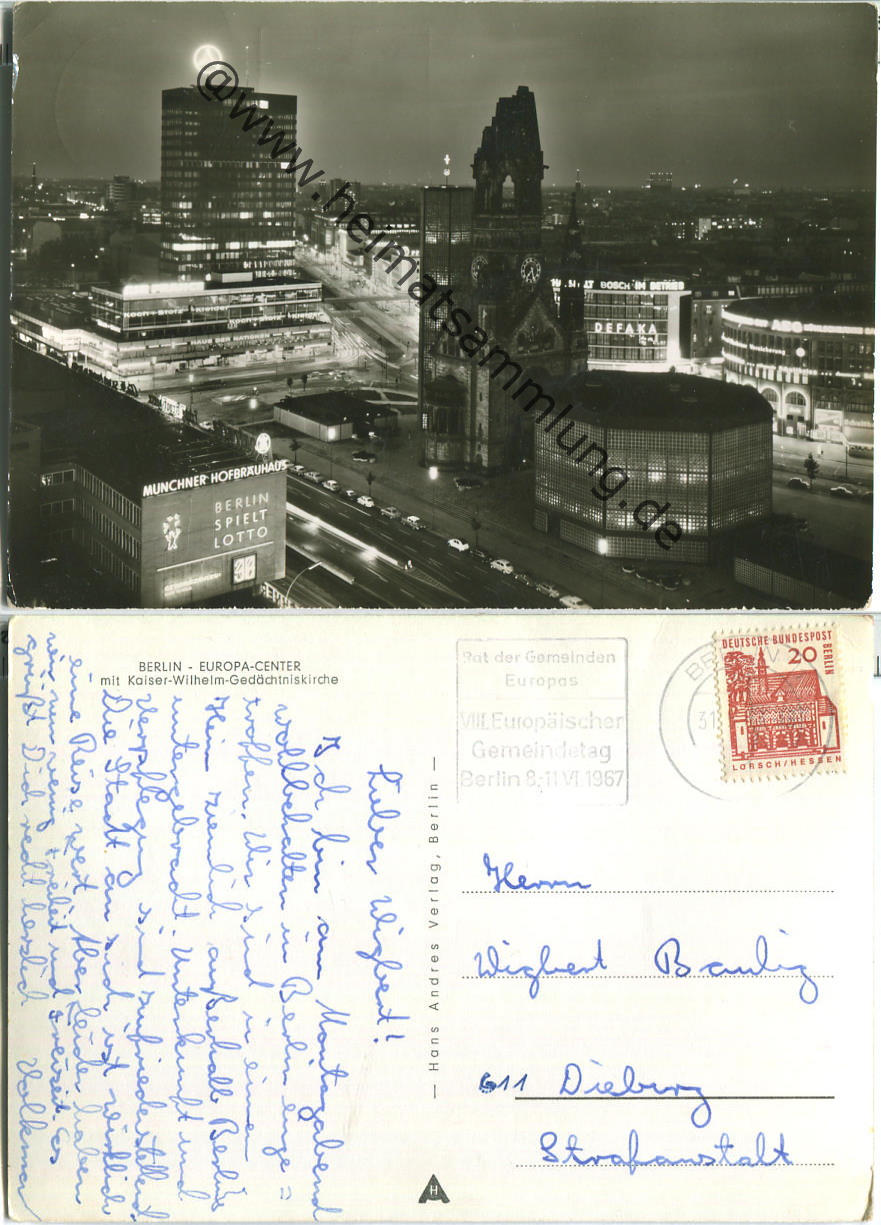 @www.heimatsammlung.de
HALT BOSCH IM BETRIEB
DEFAKA
MÜNCHNER HOFBRÄUHAUS
BERLIN
SPIELT
LOTTO
BERLIN - EUROPA-CENTER
mit Kaiser-Wilhelm-Gedächtniskirche
Lieber Wigbert!
Ich bin am Montagabend
wohlbehalten in Berlin einge=
troffen. Wir sind in einem
Heim ziemlich außerhalb Berlins
untergebracht. Unterkunft und
Verpflegung sind zufriedenstellend.
Die Stadt an sich ist wirklich
eine Reise wert. Aber leider haben
wir nur wenig Freizeit. Es
grüßt Dich recht herzlich Volkmar
— Hans Andres Verlag, Berlin —
H
Rat der Gemeinden
Europas
VIII. Europäischer
Gemeindetag
Berlin 8.-11.VI.1967
DEUTSCHE BUNDESPOST
BERLIN
20
LORSCH/HESSEN
31
Herrn
Wigbert
611 Dieburg
Strafanstalt